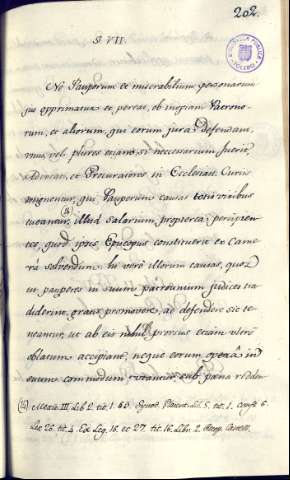 202.
§. VII.
Ne Pauperum et miserabilium personarum
jus opprimatur et pereat, ob inopiam Patrono-
rum, et aliorum qui eorum jura defendant,
unus, vel plures etiam si necessarium fuerit,
Advocati, et Procuratores in Ecclesiast. Curiis
assignentur, qui Pauperum causas totis viribus
tueantur, illud salarium propterea percipien-
tes, quod ipsis Episcopus constituerit ex Came-
râ solvendum. Hi vero illorum causas, quos
ut pauperes in suum patrocinium judices tra-
diderint, gratis promovere, ac defendere sic te-
neantur, ut ab eis nihil prorsus etiam ultro
oblatum accipiant, neque eorum operâ in
suum commodum utantur sub poena redden
Mexic. III. Lib. 2. tit. 1. §. 5. Synod. Lib. 5. tit. 1. Const. 6.
Leg. 26. tit. 4. Ex Leg. 16. et 27. tit. 16. Libr. 2. Recop. Castell.